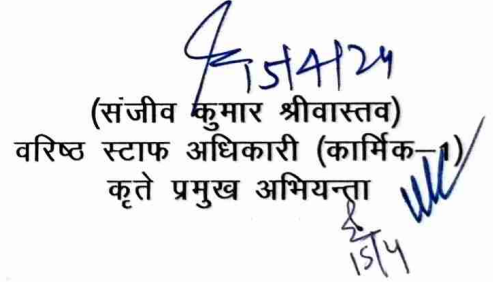 15/4/24
(संजीव कुमार श्रीवास्तव)
वरिष्ठ स्टाफ अधिकारी (कार्मिक–1)
कृते प्रमुख अभियन्ता
15/4